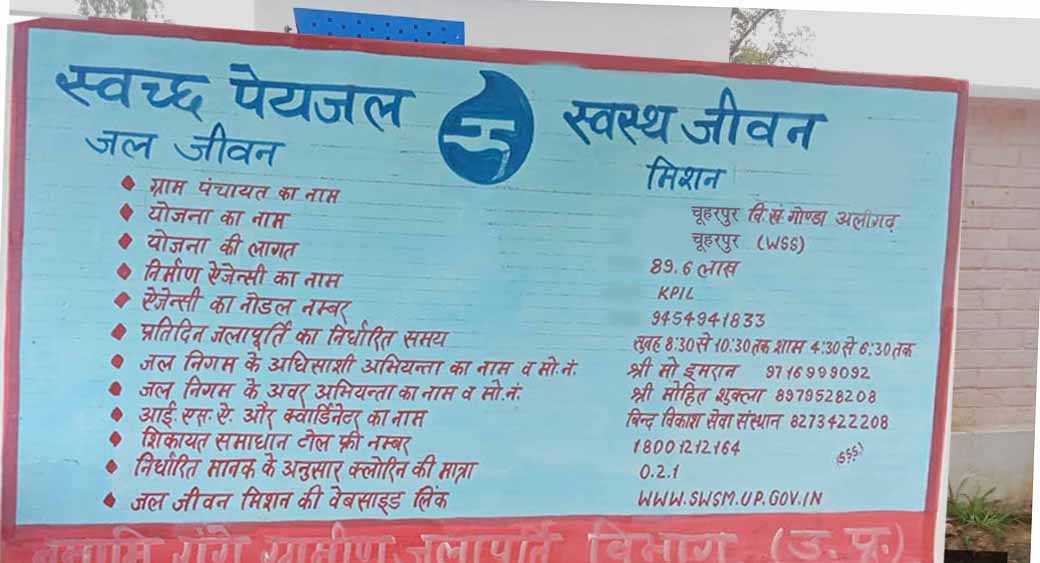 स्वच्छ पेयजल स्वस्थ जीवन
जल जीवन मिशन
ग्राम पंचायत का नाम चूहरपुर वि.खं.गोण्डा अलीगढ़
योजना का नाम चूहरपुर (WSS)
योजना की लागत 89.6 लाख
निर्माण ऐजेन्सी का नाम KPIL
ऐजेन्सी का नोडल नम्बर 9454941833
प्रतिदिन जलापूर्ति का निर्धारित समय सुबह 8:30 से 10:30 तक शाम 4:30 से 6:30 तक
जल निगम के अधिसाशी अभियन्ता का नाम व मो.नं. श्री मो इमरान 9716999092
जल निगम के अवर अभियन्ता का नाम व मो.नं. श्री मोहित शुक्ला 8979528208
आई.एस.ए. और क्वार्डिनेटर का नाम बिन्द विकाश सेवा संस्थान 8273422208
शिकायत समाधान टोल फ्री नम्बर 18001212164
निर्धारित मानक के अनुसार क्लोरिन की मात्रा 0.2.1
जल जीवन मिशन की वेबसाइड लिंक WWW.SWSM.UP.GOV.IN
नमामि गंगे ग्रामीण जलापूर्ति विभाग (उ.प्र.)